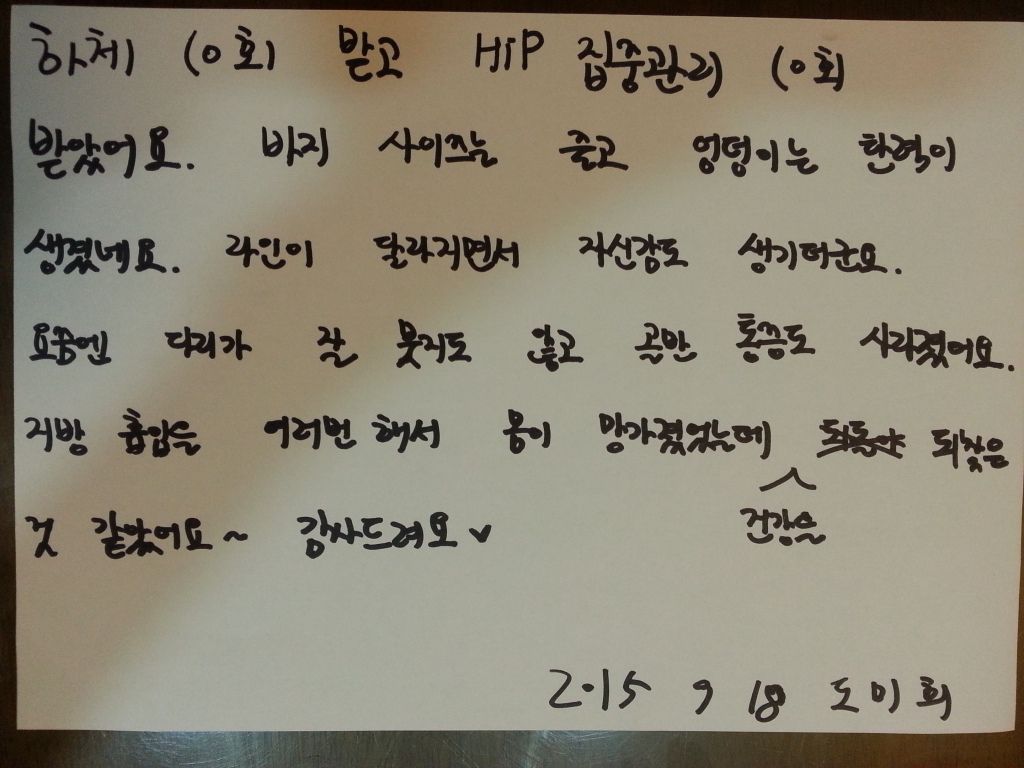 하체 10회 받고 HIP 집중관리 10회
받았어요. 바지 사이즈는 줄고 엉덩이는 탄력이
생겼네요. 라인이 달라지면서 자신감도 생기더군요.
요즘엔 다리가 잘 붓지도 않고 골반 통증도 사라졌어요.
지방 흡입을 여러번 해서 몸이 망가졌었는데 되찾은
건강을
것 같았어요~ 감사드려요♥
2015 9 18 도미희